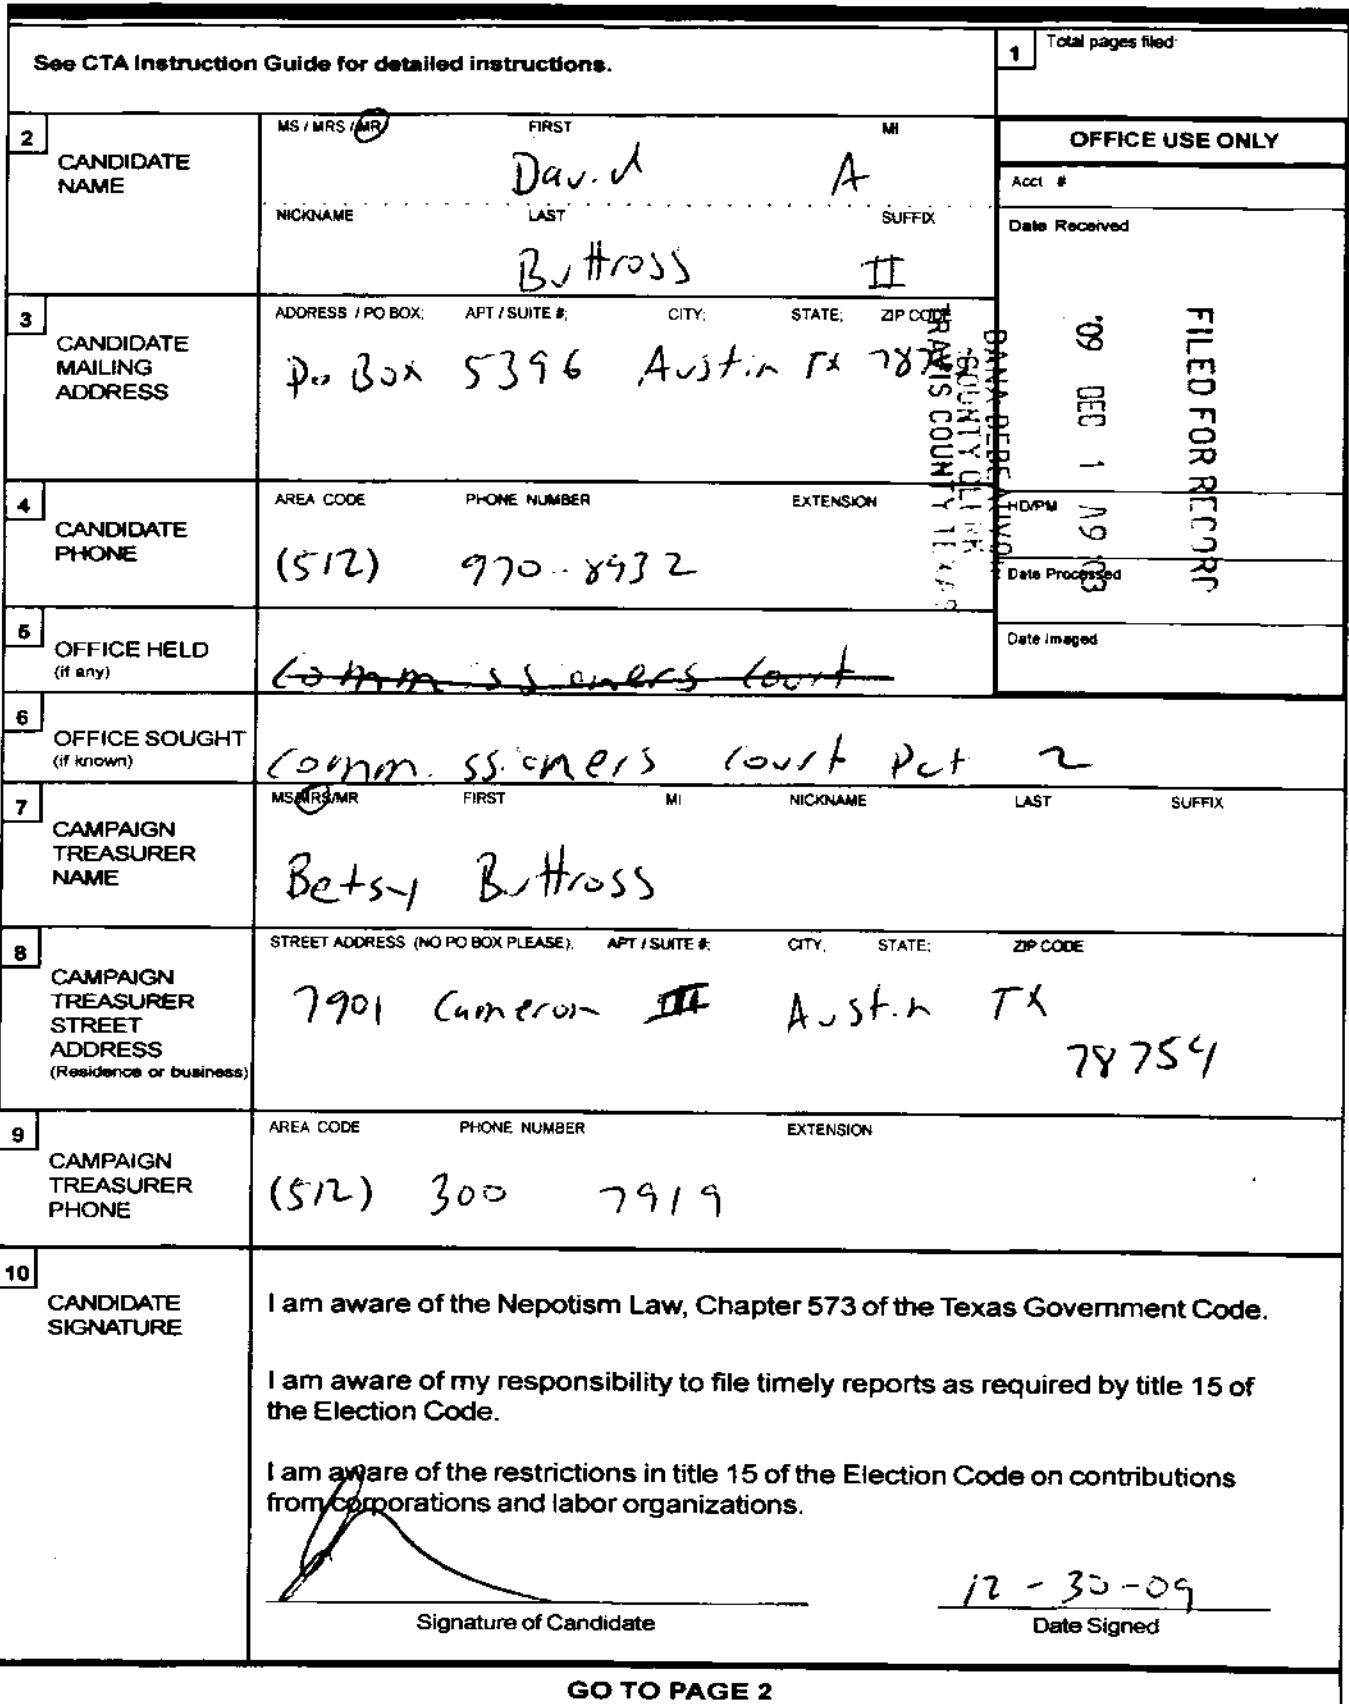 See CTA Instruction Guide for detailed instructions.
1 Total pages filed:
2 CANDIDATE NAME
MS / MRS / MR FIRST MI
David A
NICKNAME LAST SUFFIX
Buttross II
OFFICE USE ONLY
Acct #
Date Received
FILED FOR RECORD
'09 DEC 1 A9:03
COUNTY CLERK
TRAVIS COUNTY TEXAS
HD/PM
Date Processed
Date Imaged
3 CANDIDATE MAILING ADDRESS
ADDRESS / PO BOX; APT / SUITE #; CITY; STATE; ZIP CODE
Po Box 5396 Austin TX
4 CANDIDATE PHONE
AREA CODE PHONE NUMBER EXTENSION
(512) 970-8932
5 OFFICE HELD (if any)
Commissioners Court
6 OFFICE SOUGHT (if known)
Commissioners Court Pct 2
7 CAMPAIGN TREASURER NAME
MS/MRS/MR FIRST MI NICKNAME LAST SUFFIX
Betsy Buttross
8 CAMPAIGN TREASURER STREET ADDRESS (Residence or business)
STREET ADDRESS (NO PO BOX PLEASE); APT / SUITE #; CITY; STATE; ZIP CODE
7901 Cameron III Austin TX
78754
9 CAMPAIGN TREASURER PHONE
AREA CODE PHONE NUMBER EXTENSION
(512) 300 7919
10 CANDIDATE SIGNATURE
I am aware of the Nepotism Law, Chapter 573 of the Texas Government Code.
I am aware of my responsibility to file timely reports as required by title 15 of
the Election Code.
I am aware of the restrictions in title 15 of the Election Code on contributions
from corporations and labor organizations.
12-30-09
Signature of Candidate Date Signed
GO TO PAGE 2